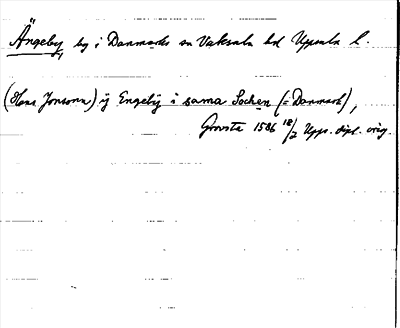 Ängeby, by i Danmarks sn Vaksala hd Uppsala l.
(Hans Jonsonn) ÿ Engebÿ i sama Sochen (= Danmark),
Gravsta 1586 18/7 Upps. dipl. orig.